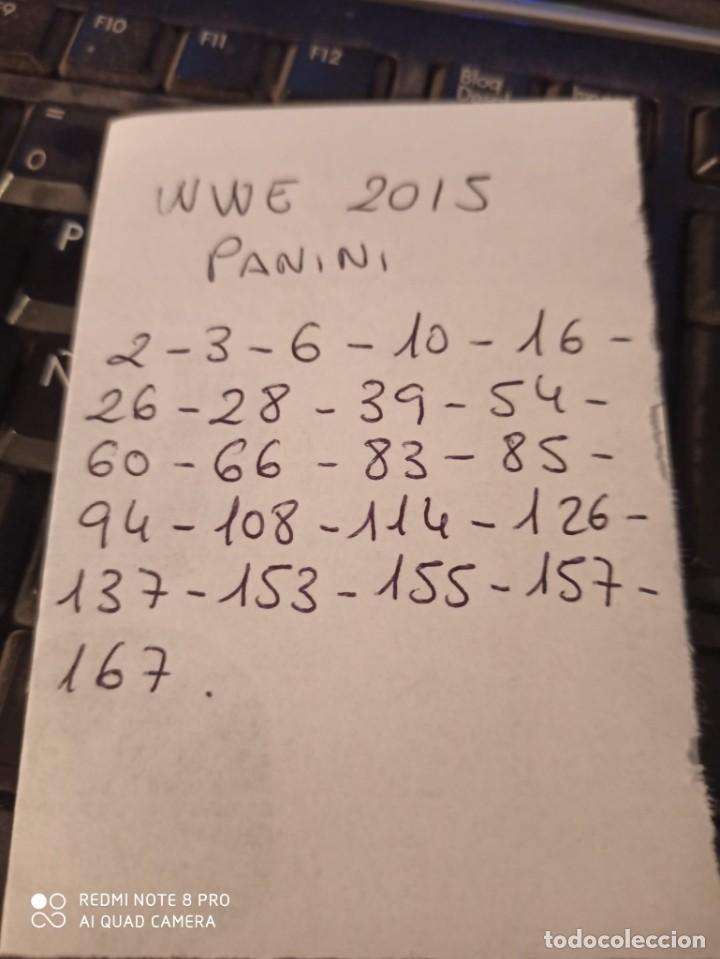 F9 F10 F11 F12 Bloq
=
O
P
Ñ
WWE 2015
PANINI
2 - 3 - 6 - 10 - 16 -
26 - 28 - 39 - 54 -
60 - 66 - 83 - 85 -
94 - 108 - 114 - 126 -
137 - 153 - 155 - 157 -
167 .
REDMI NOTE 8 PRO
AI QUAD CAMERA
todocoleccion